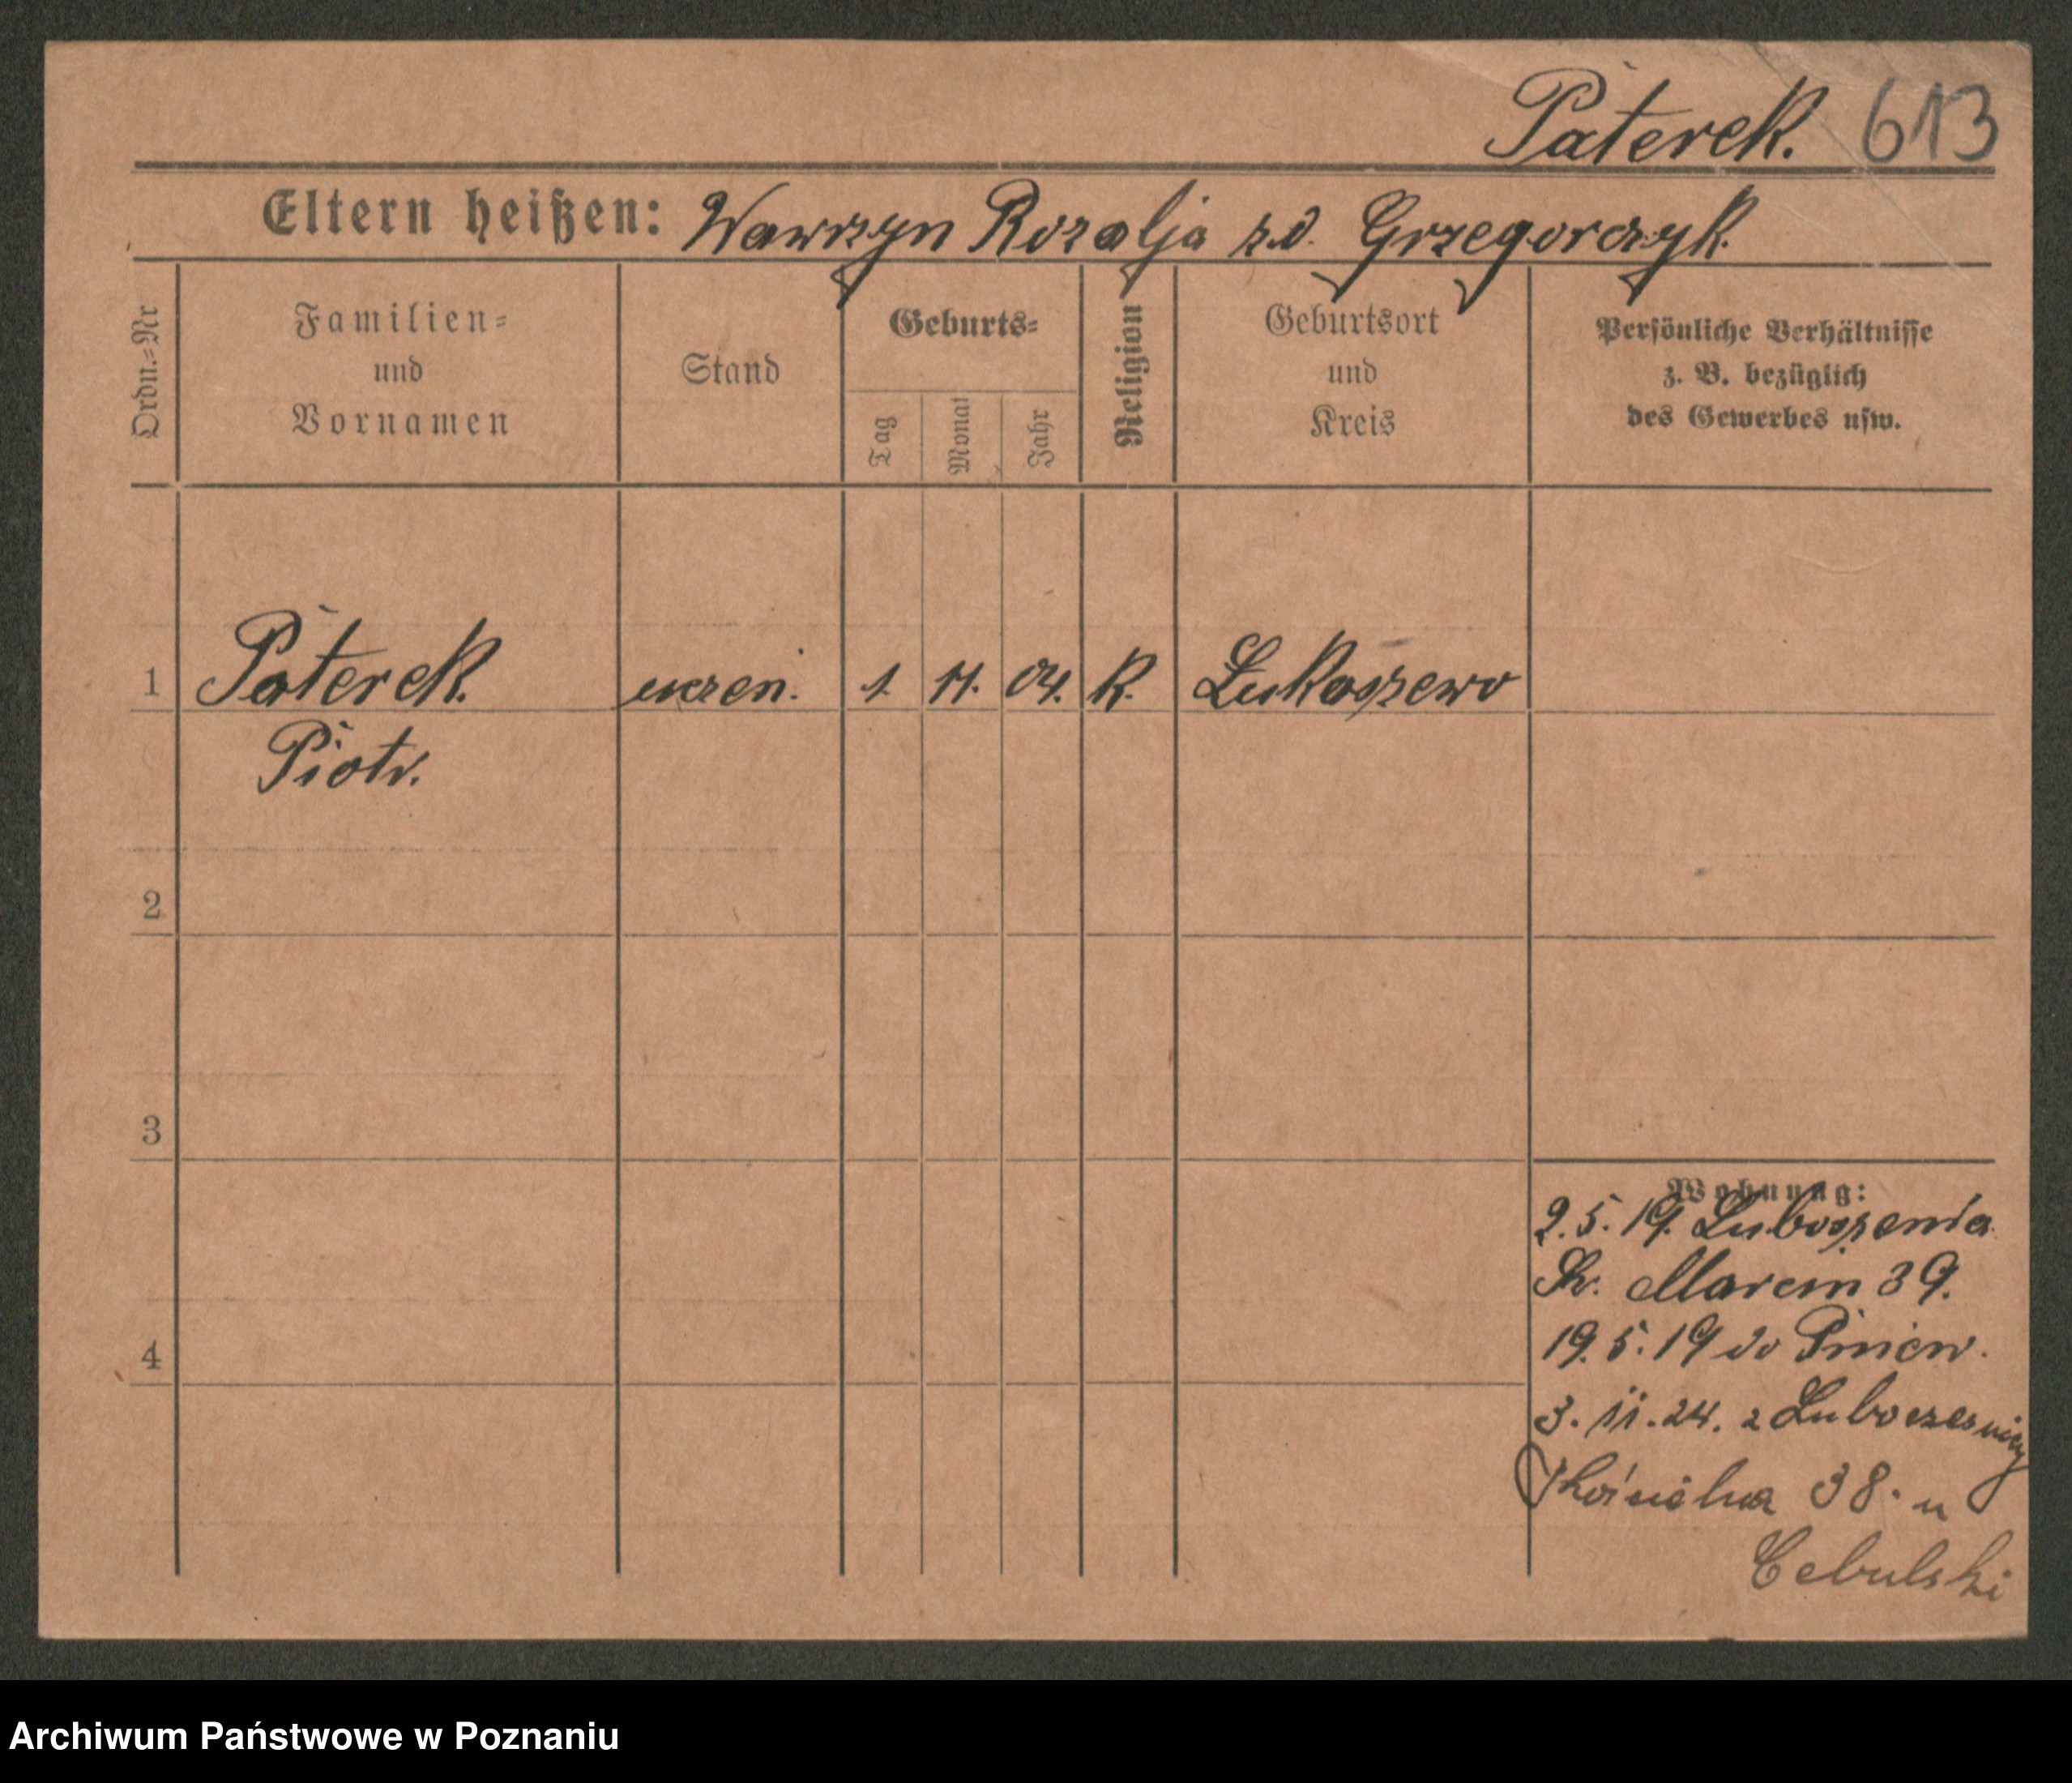 Paterek. 613
Eltern heißen: Wawrzyn Rozalja z.d. Grzegorczyk
Ordn.=Nr
Familien=
und
Vornamen
Stand
Geburts=
Tag
Monat
Jahr
Religion
Geburtsort
und
Kreis
Persönliche Verhältnisse
z. B. bezüglich
des Gewerbes usw.
1 Paterek uczeń. 1. 11. 04. K. Lukaszewo
Piotr.
2
3
4
Wohnung:
2.5.19. Luboszenia
Św. Marcin 39.
19.5.19 do Pniew.
3.11.24. z
38. u
Cebulski
Archiwum Państwowe w Poznaniu